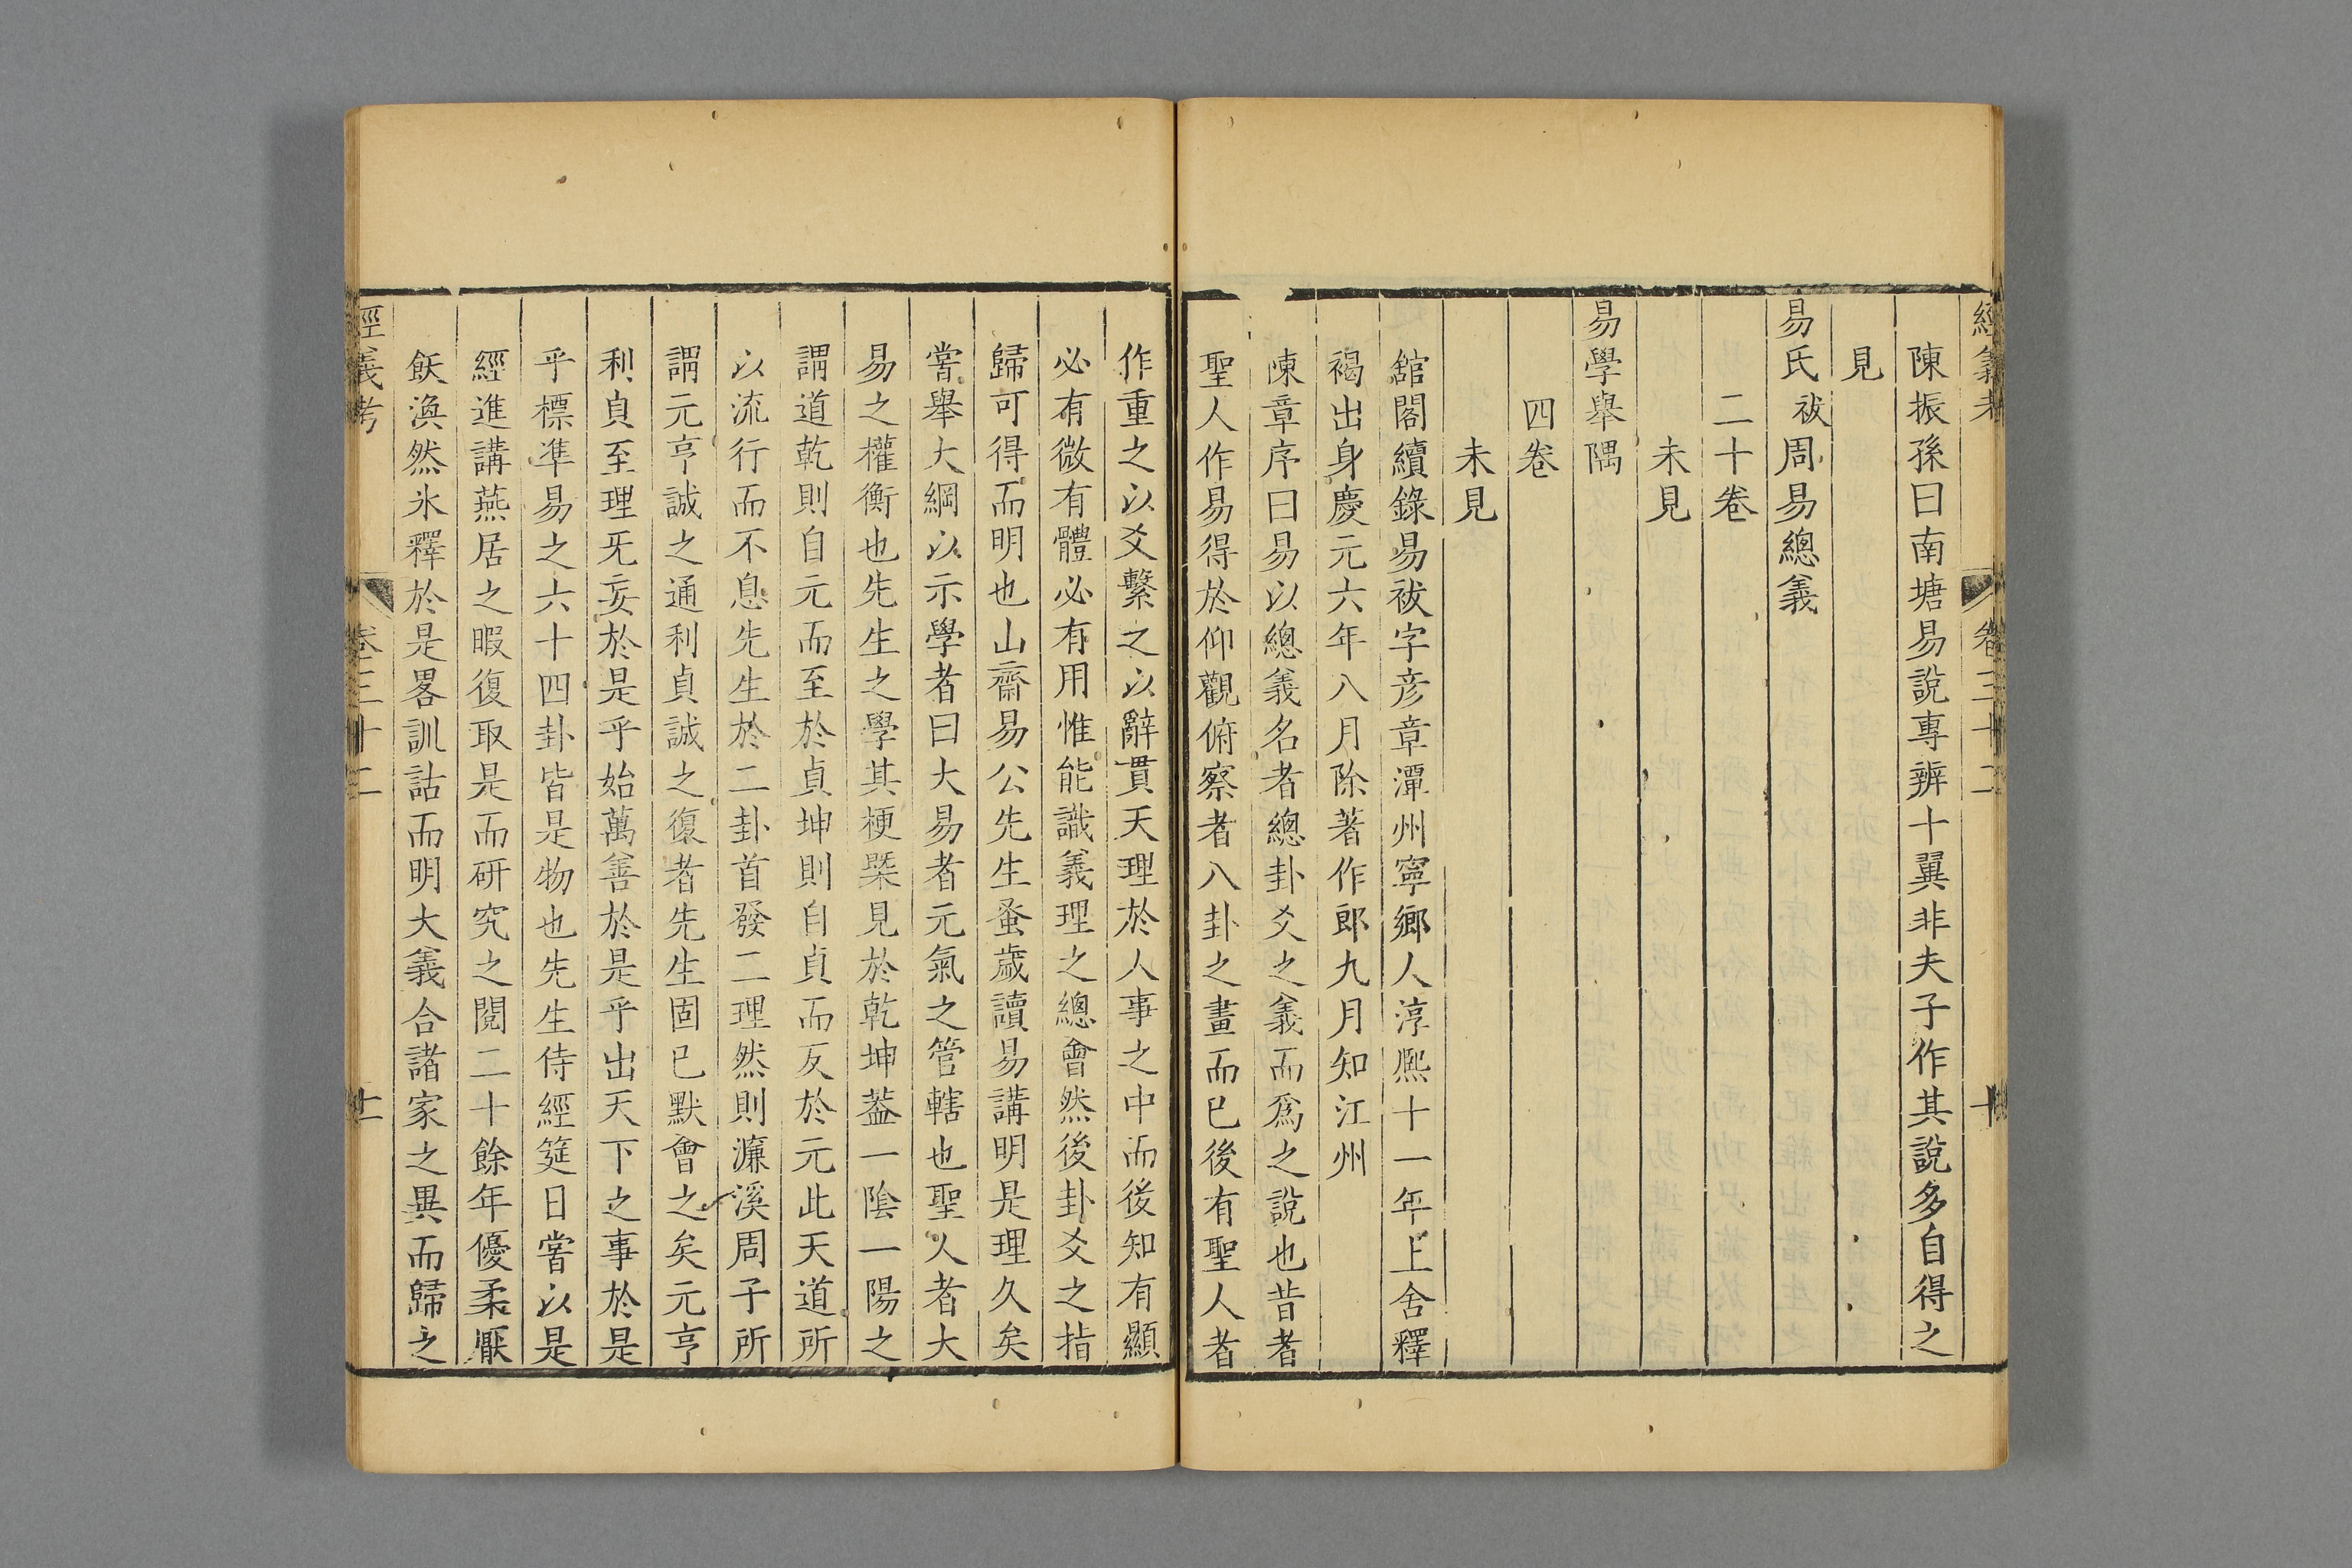 經義考 卷三十二 十
陳振孫曰南塘易說專辨十翼非夫子作其說多自得之
見
易氏祓周易總義
二十卷
未見
易學舉隅
四卷
未見
館閣續錄易祓字彥章潭州寧鄉人淳熙十一年上舍釋
褐出身慶元六年八月除著作郎九月知江州
陳章序曰易以總義名者總卦爻之義而爲之說也昔者
聖人作易得於仰觀俯察者八卦之畫而已後有聖人者
作重之以爻繫之以辭貫天理於人事之中而後知有顯
必有微有體必有用惟能識義理之總會然後卦爻之指
歸可得而明也山齋易公先生蚤歲讀易講明是理久矣
嘗舉大綱以示學者曰大易者元氣之管轄也聖人者大
易之權衡也先生之學其梗槩見於乾坤蓋一陰一陽之
謂道乾則自元而至於貞坤則自貞而反於元此天道所
以流行而不息先生於二卦首發二理然則濂溪周子所
謂元亨誠之通利貞誠之復者先生固已默會之矣元亨
利貞至理旡妄於是乎始萬善於是乎出天下之事於是
乎標準易之六十四卦皆是物也先生侍經筵日嘗以是
經進講燕居之暇復取是而研究之閱二十餘年優柔厭
飫渙然氷釋於是畧訓詁而明大義合諸家之異而歸之
經義考 卷三十二 十一